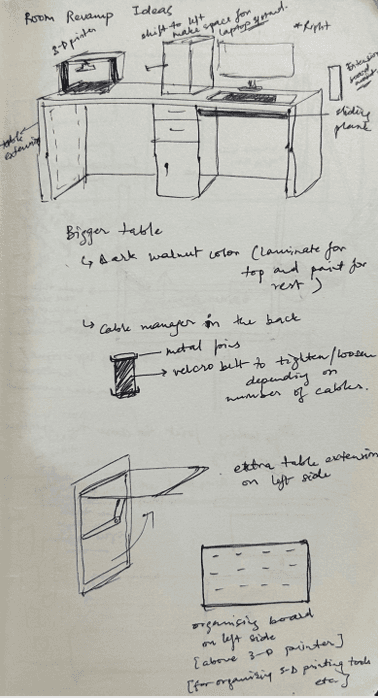 Room Revamp Ideas
3-D printer
shift to left
make space for
laptop stand.
* Right
Extension
board
table
extension
sliding
plank
Bigger table
↳ Dark walnut color (laminate for
top and paint for
rest)
↳ Cable manager in the back
metal pins
velcro belt to tighten/loosen
depending on
number of cables.
extra table extension
on left side
organising board
on left side
[above 3-D printer]
[for organizing 3-D printing tools
etc]